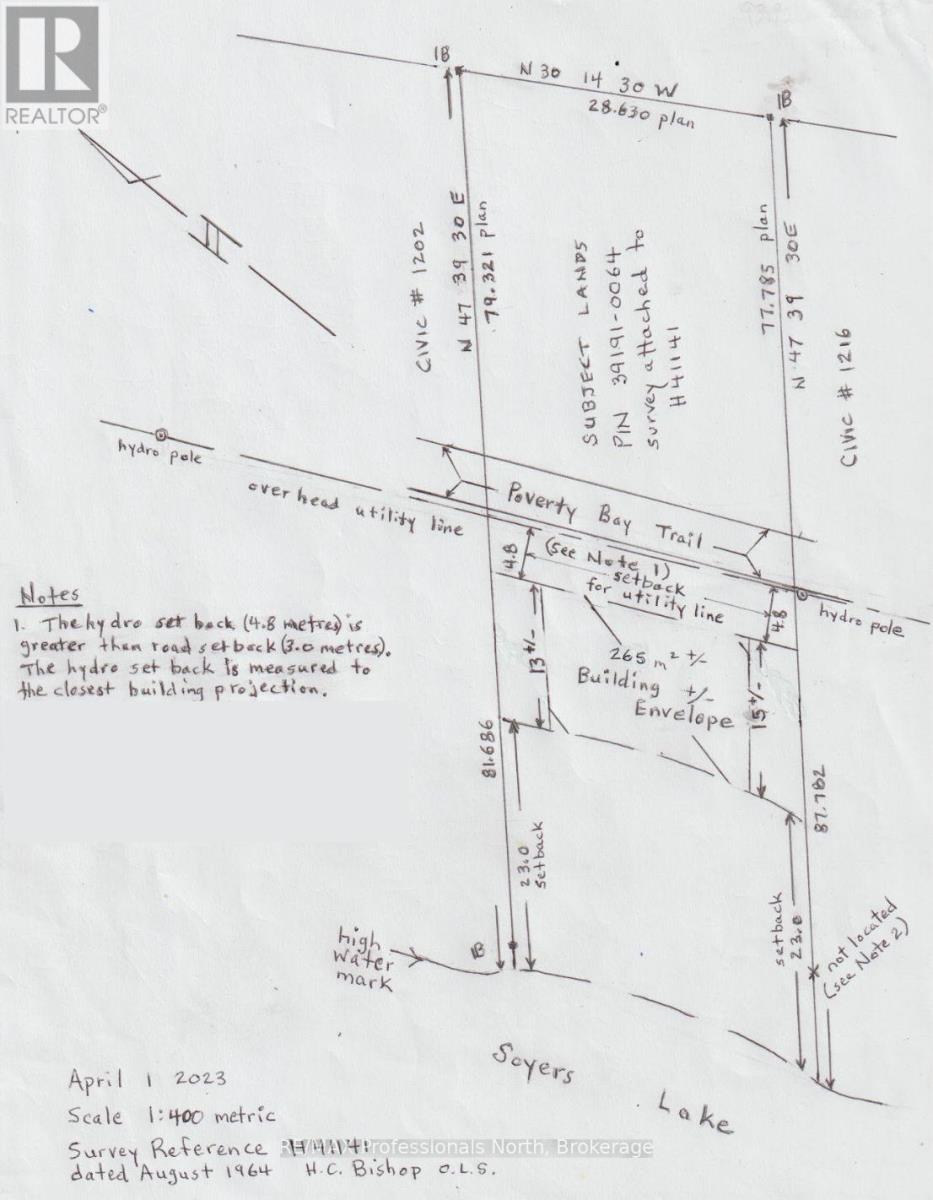 REALTOR®
IB
N 30 14 30 W
28.630 plan
IB
CIVIC # 1202
N 47 39 30 E
79.321 plan
SUBJECT LANDS
PIN 39191-0064
survey attached to
H41141
77.785 plan
N 47 39 30E
CIVIC # 1216
hydro pole
overhead utility line
Poverty Bay Trail
(see Note 1)
4.8
setback
for utility line
4.8
hydro pole
Notes
1. The hydro set back (4.8 metres) is
greater than road setback (3.0 metres).
The hydro set back is measured to
the closest building projection.
13 +/-
265 m² +/-
Building +/-
Envelope
15 +/-
81.686
87.782
23.0
setback
setback
23.0
not located
(see Note 2)
high
water
mark
IB
Soyers
Lake
April 1 2023
Scale 1:400 metric
Survey Reference H41141
RE/MAX Professionals North, Brokerage
dated August 1964 H.C. Bishop O.L.S.